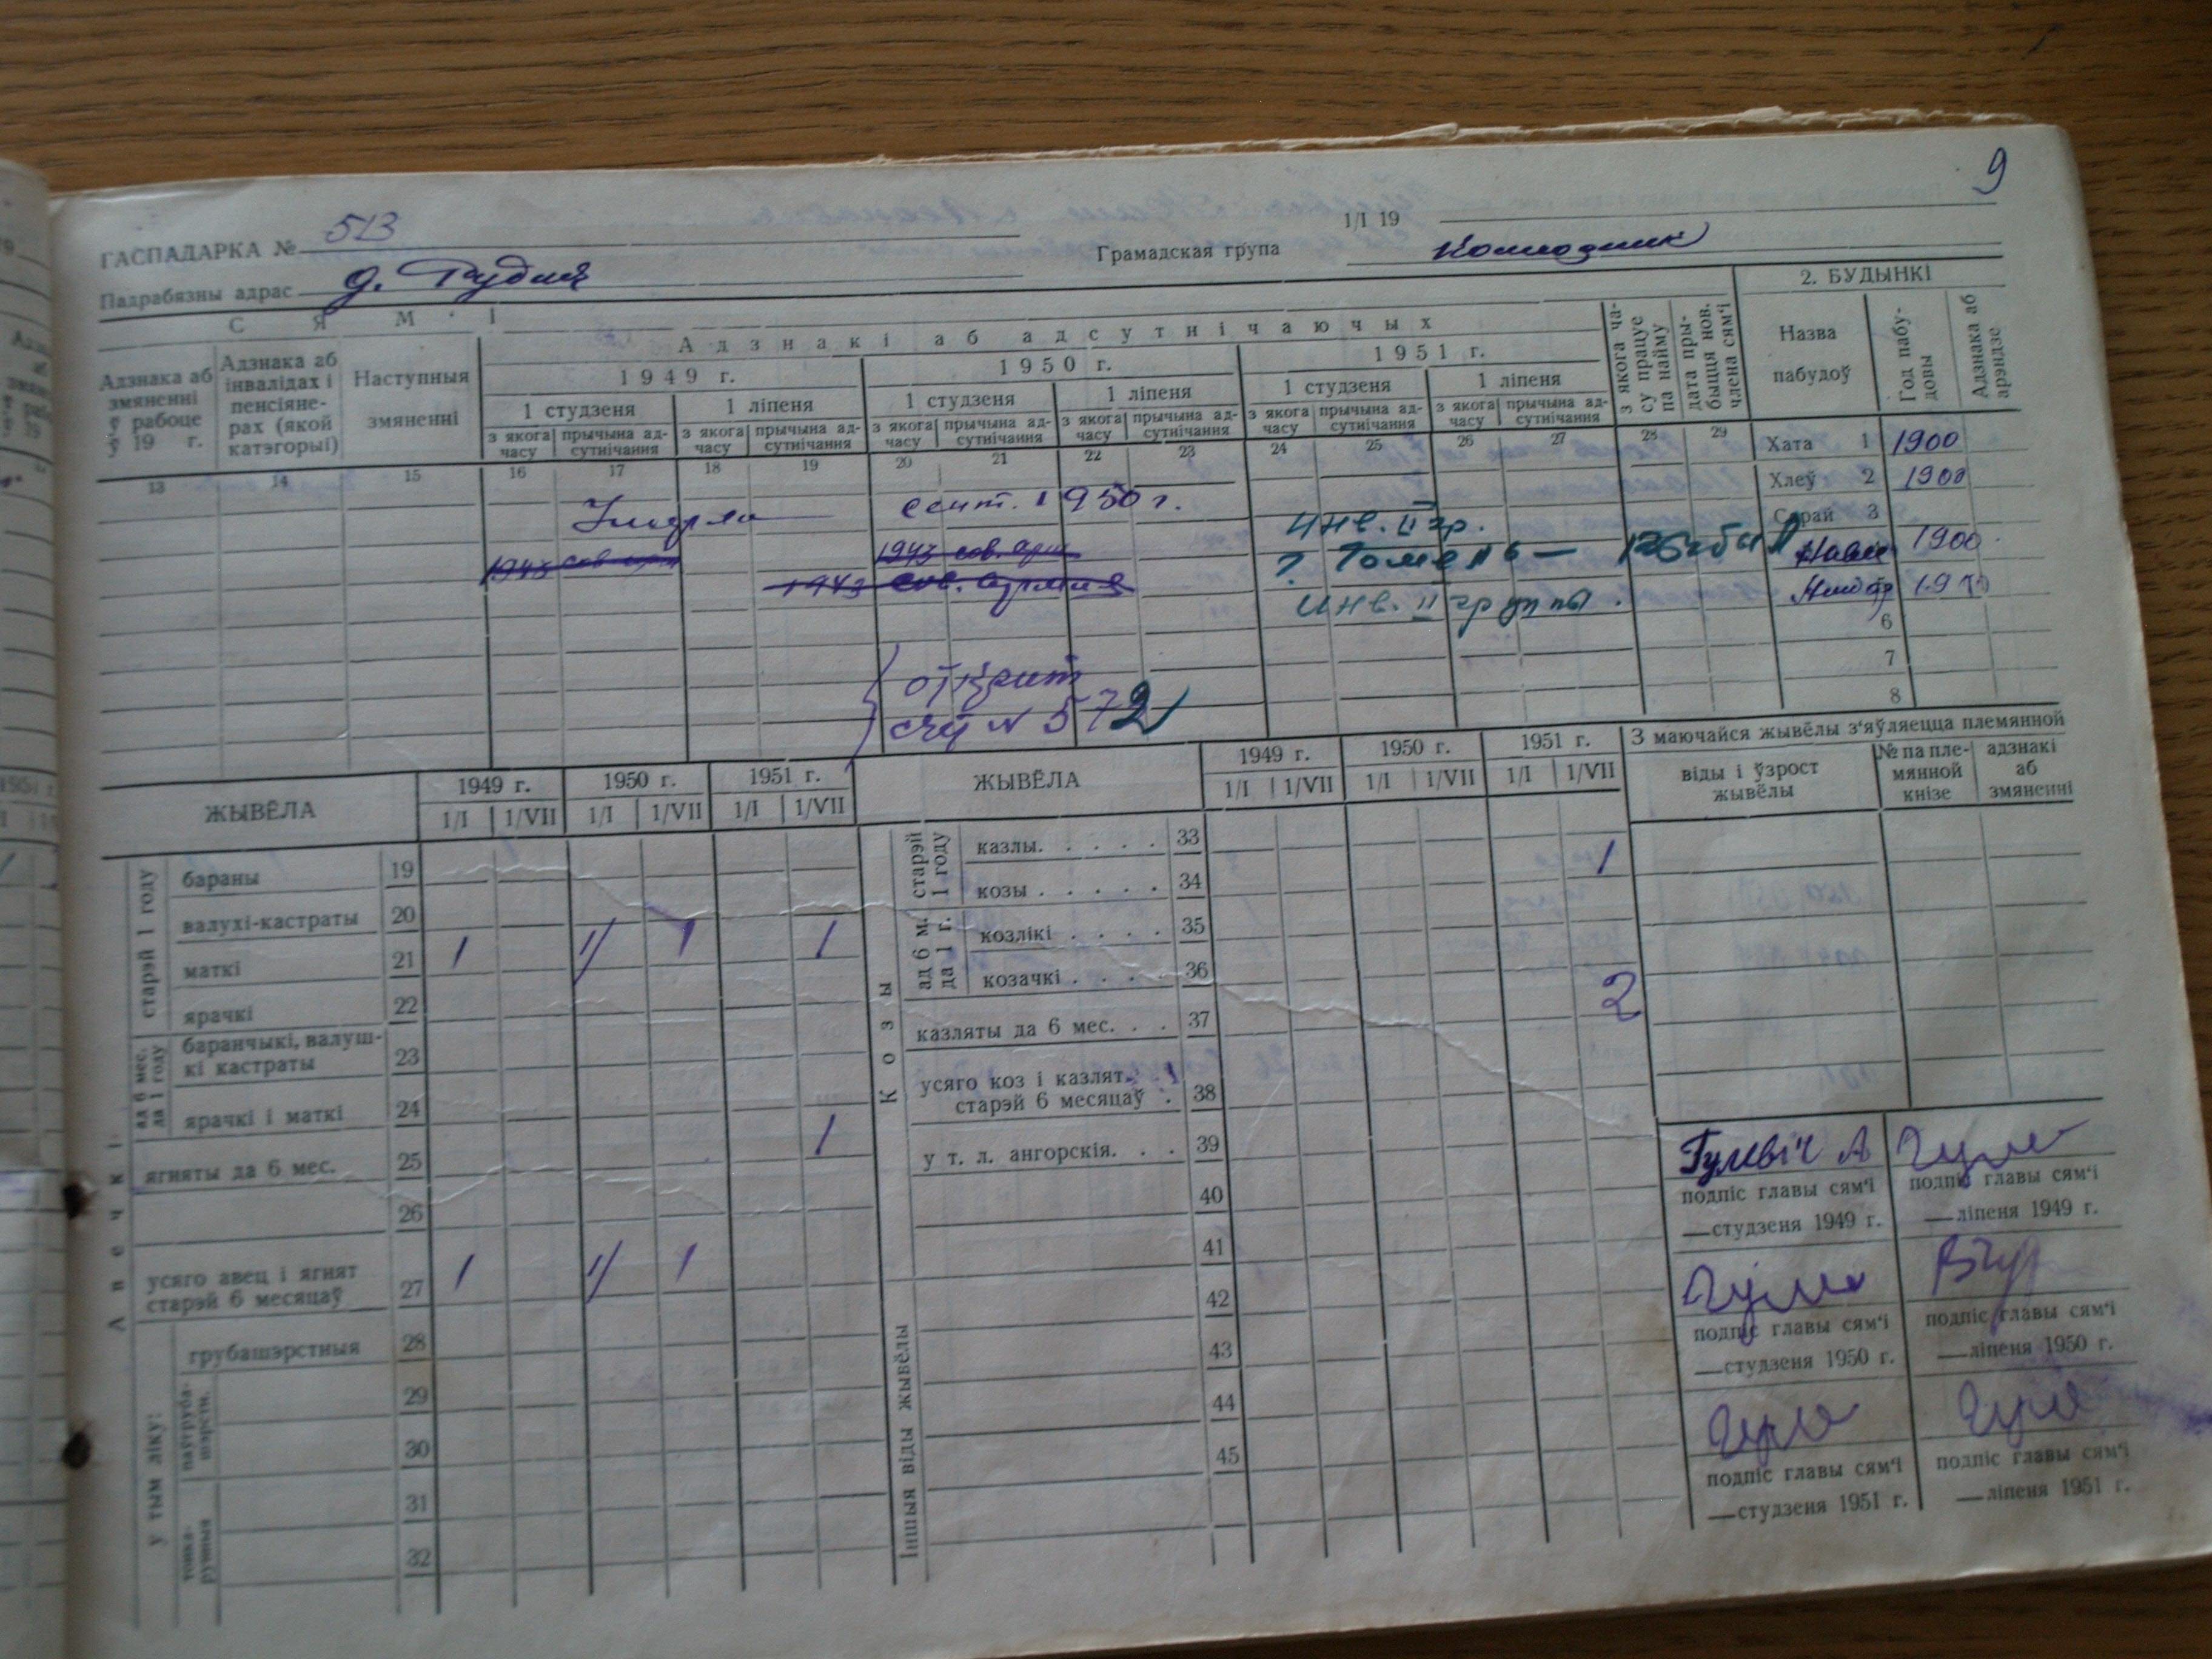 9
ГАСПАДАРКА № 513
1/I 19
Падрабязны адрас д. Рудня
Грамадская група Колхозник
С Я М ' І
Адзнака аб змяненні ў рабоце ў 19 г.
Адзнака аб інвалідах і пенсіяне-рах (якой катэгорыі)
Наступныя змяненні
Адзнакі аб адсутнічаючых
1949 г.
1950 г.
1951 г.
1 студзеня
1 ліпеня
1 студзеня
1 ліпеня
1 студзеня
1 ліпеня
з якога часу
прычына ад-сутнічання
з якога часу
прычына ад-сутнічання
з якога часу
прычына ад-сутнічання
з якога часу
прычына ад-сутнічання
з якога часу
прычына ад-сутнічання
з якога часу
прычына ад-сутнічання
з якога ча-су працуе па найму
дата пры-быцця нов. члена сям'і
2. БУДЫНКІ
Назва пабудоў
Год пабу-довы
Адзнака аб арэндзе
13 14 15 16 17 18 19 20 21 22 23 24 25 26 27 28 29
Хата 1 1900
Хлеў 2 1900
Сарай 3
1900
6
7
8
Умерла сент. 1950 г.
инв. II гр.
1943 сов. арм
1943 сов. арм
1943 сов. армия
инв. II группы.
открит
счет № 572
ЖЫВЁЛА
1949 г.
1950 г.
1951 г.
1/I 1/VII 1/I 1/VII 1/I 1/VII
Авечкі
старэй 1 году
бараны 19
валухі-кастраты 20
маткі 21 1 1 1 1
ярачкі 22
ад 6 мес. да 1 году
баранчыкі, валуш-кі кастраты 23
ярачкі і маткі 24
ягняты да 6 мес. 25 1
26
усяго авец і ягнят старэй 6 месяцаў 27 1 1 1
у тым ліку:
грубашэрстныя 28
паўгруба-шэрстн.
29
30
тонка-рунныя
31
32
ЖЫВЁЛА
1949 г.
1950 г.
1951 г.
1/I 1/VII 1/I 1/VII 1/I 1/VII
Козы
старэй 1 году
казлы. . . . . 33
козы . . . . . 34 1
ад 6 м. да 1 г.
козлікі . . . . 35
козачкі . . . . 36
казляты да 6 мес. . . 37 2
усяго коз і казлят старэй 6 месяцаў . 38
у т. л. ангорскія. . . 39
Іншыя віды жывёлы
40
41
42
43
44
45
З маючайся жывёлы з'яўляецца племянной
віды і ўзрост жывёлы
№ па пле-мянной кнізе
адзнакі аб змяненні
Гулевіч А
подпіс главы сям'і
—студзеня 1949 г.
подпіс главы сям'і
—ліпеня 1949 г.
подпіс главы сям'і
—студзеня 1950 г.
подпіс главы сям'і
—ліпеня 1950 г.
подпіс главы сям'і
—студзеня 1951 г.
подпіс главы сям'і
—ліпеня 1951 г.